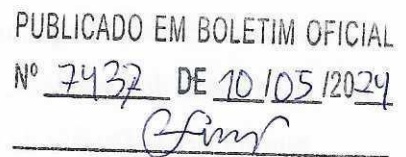 PUBLICADO EM BOLETIM OFICIAL
Nº 7437 DE 10/05/2024